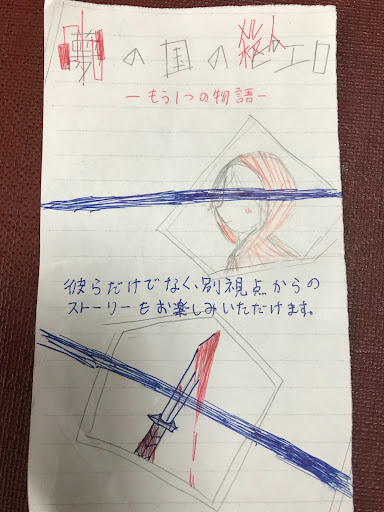 の国のピエロ
－もう1つの物語－
彼らだけでなく、別視点からの
ストーリーをお楽しみいただけます。